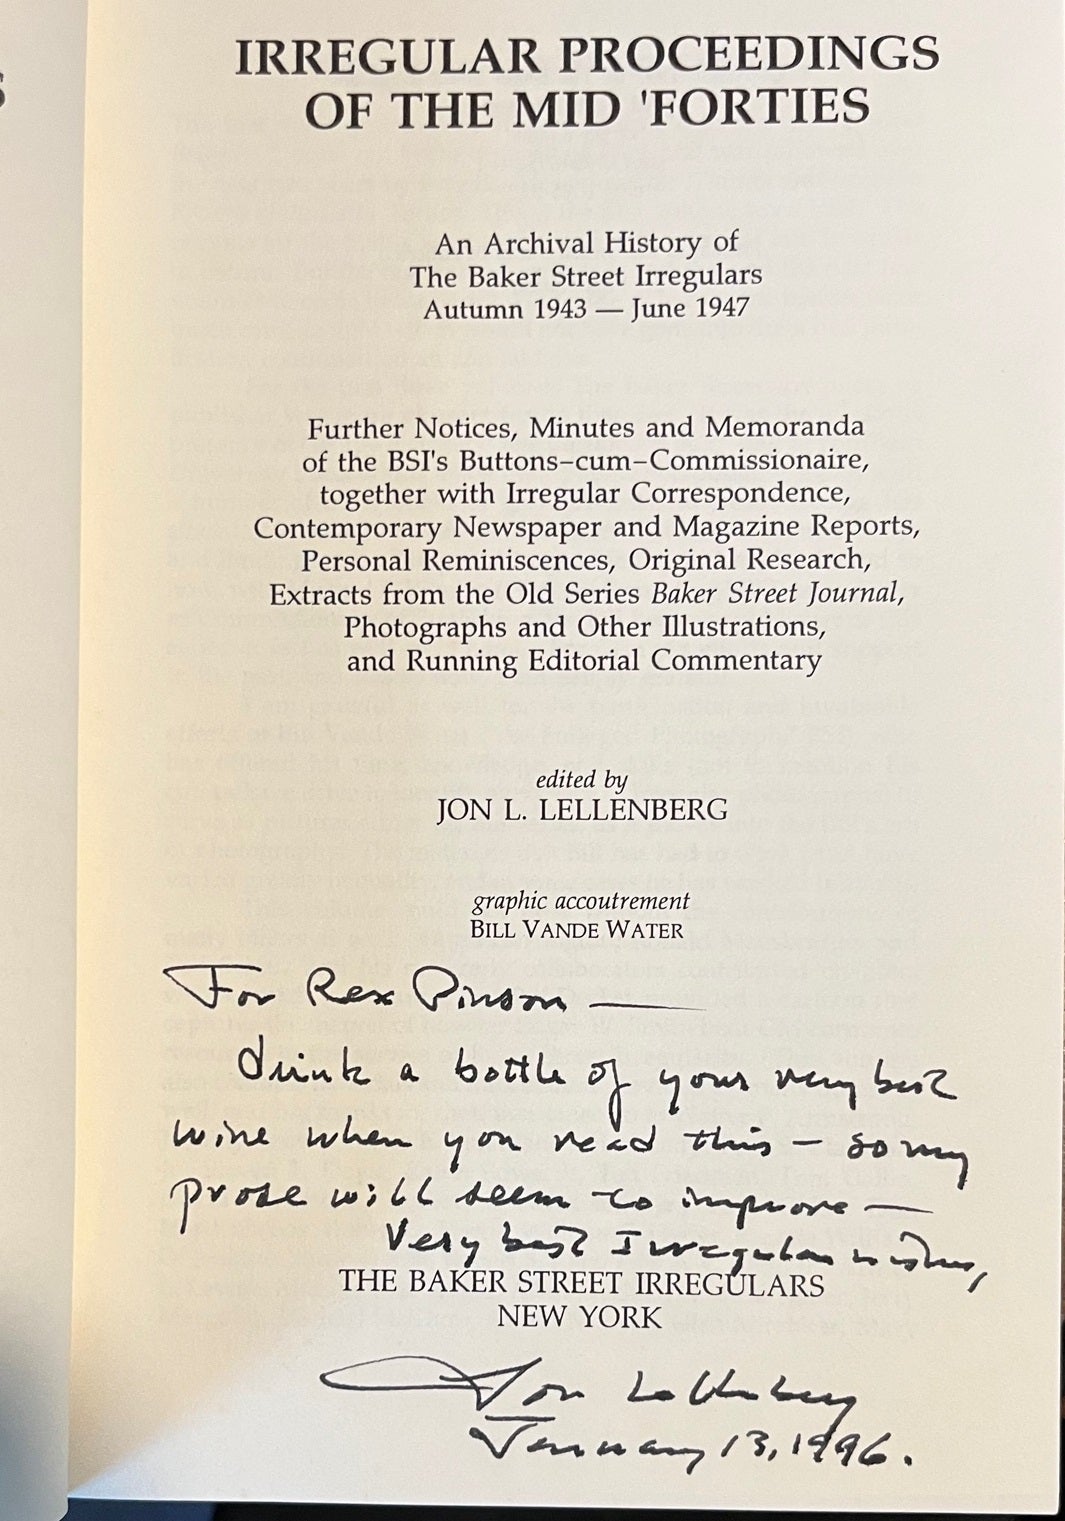 S
IRREGULAR PROCEEDINGS
OF THE MID 'FORTIES
An Archival History of
The Baker Street Irregulars
Autumn 1943 — June 1947
Further Notices, Minutes and Memoranda
of the BSI's Buttons–cum–Commissionaire,
together with Irregular Correspondence,
Contemporary Newspaper and Magazine Reports,
Personal Reminiscences, Original Research,
Extracts from the Old Series Baker Street Journal,
Photographs and Other Illustrations,
and Running Editorial Commentary
edited by
JON L. LELLENBERG
graphic accoutrement
BILL VANDE WATER
For Rex Pinson —
drink a bottle of your very best
wine when you read this — so my
prose will seem to improve —
Very best Irregular wishes,
THE BAKER STREET IRREGULARS
NEW YORK
Jon Lellenberg
January 13, 1996.